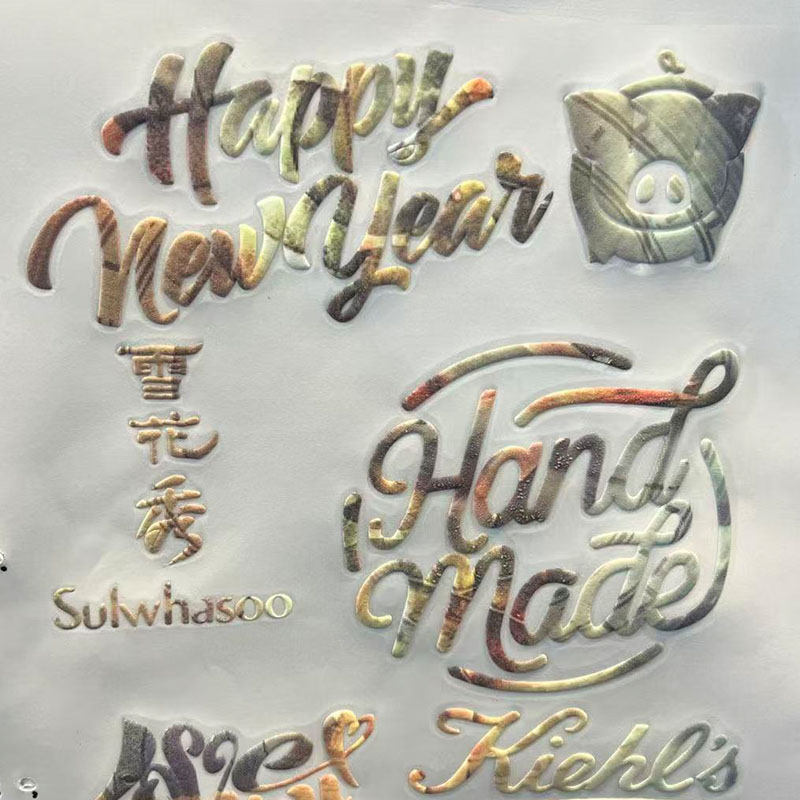 Happy
New Year
雪
花
秀
Sulwhasoo
Hand
Made
Kiehl's